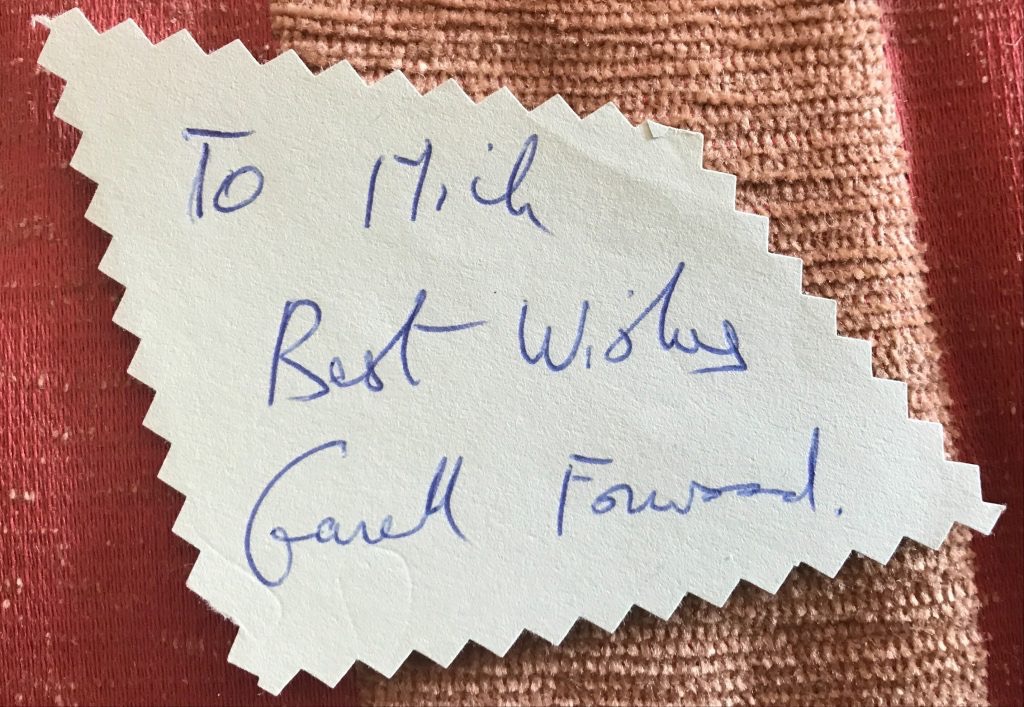 To Mich
Best Wishes
Gareth Forwood.